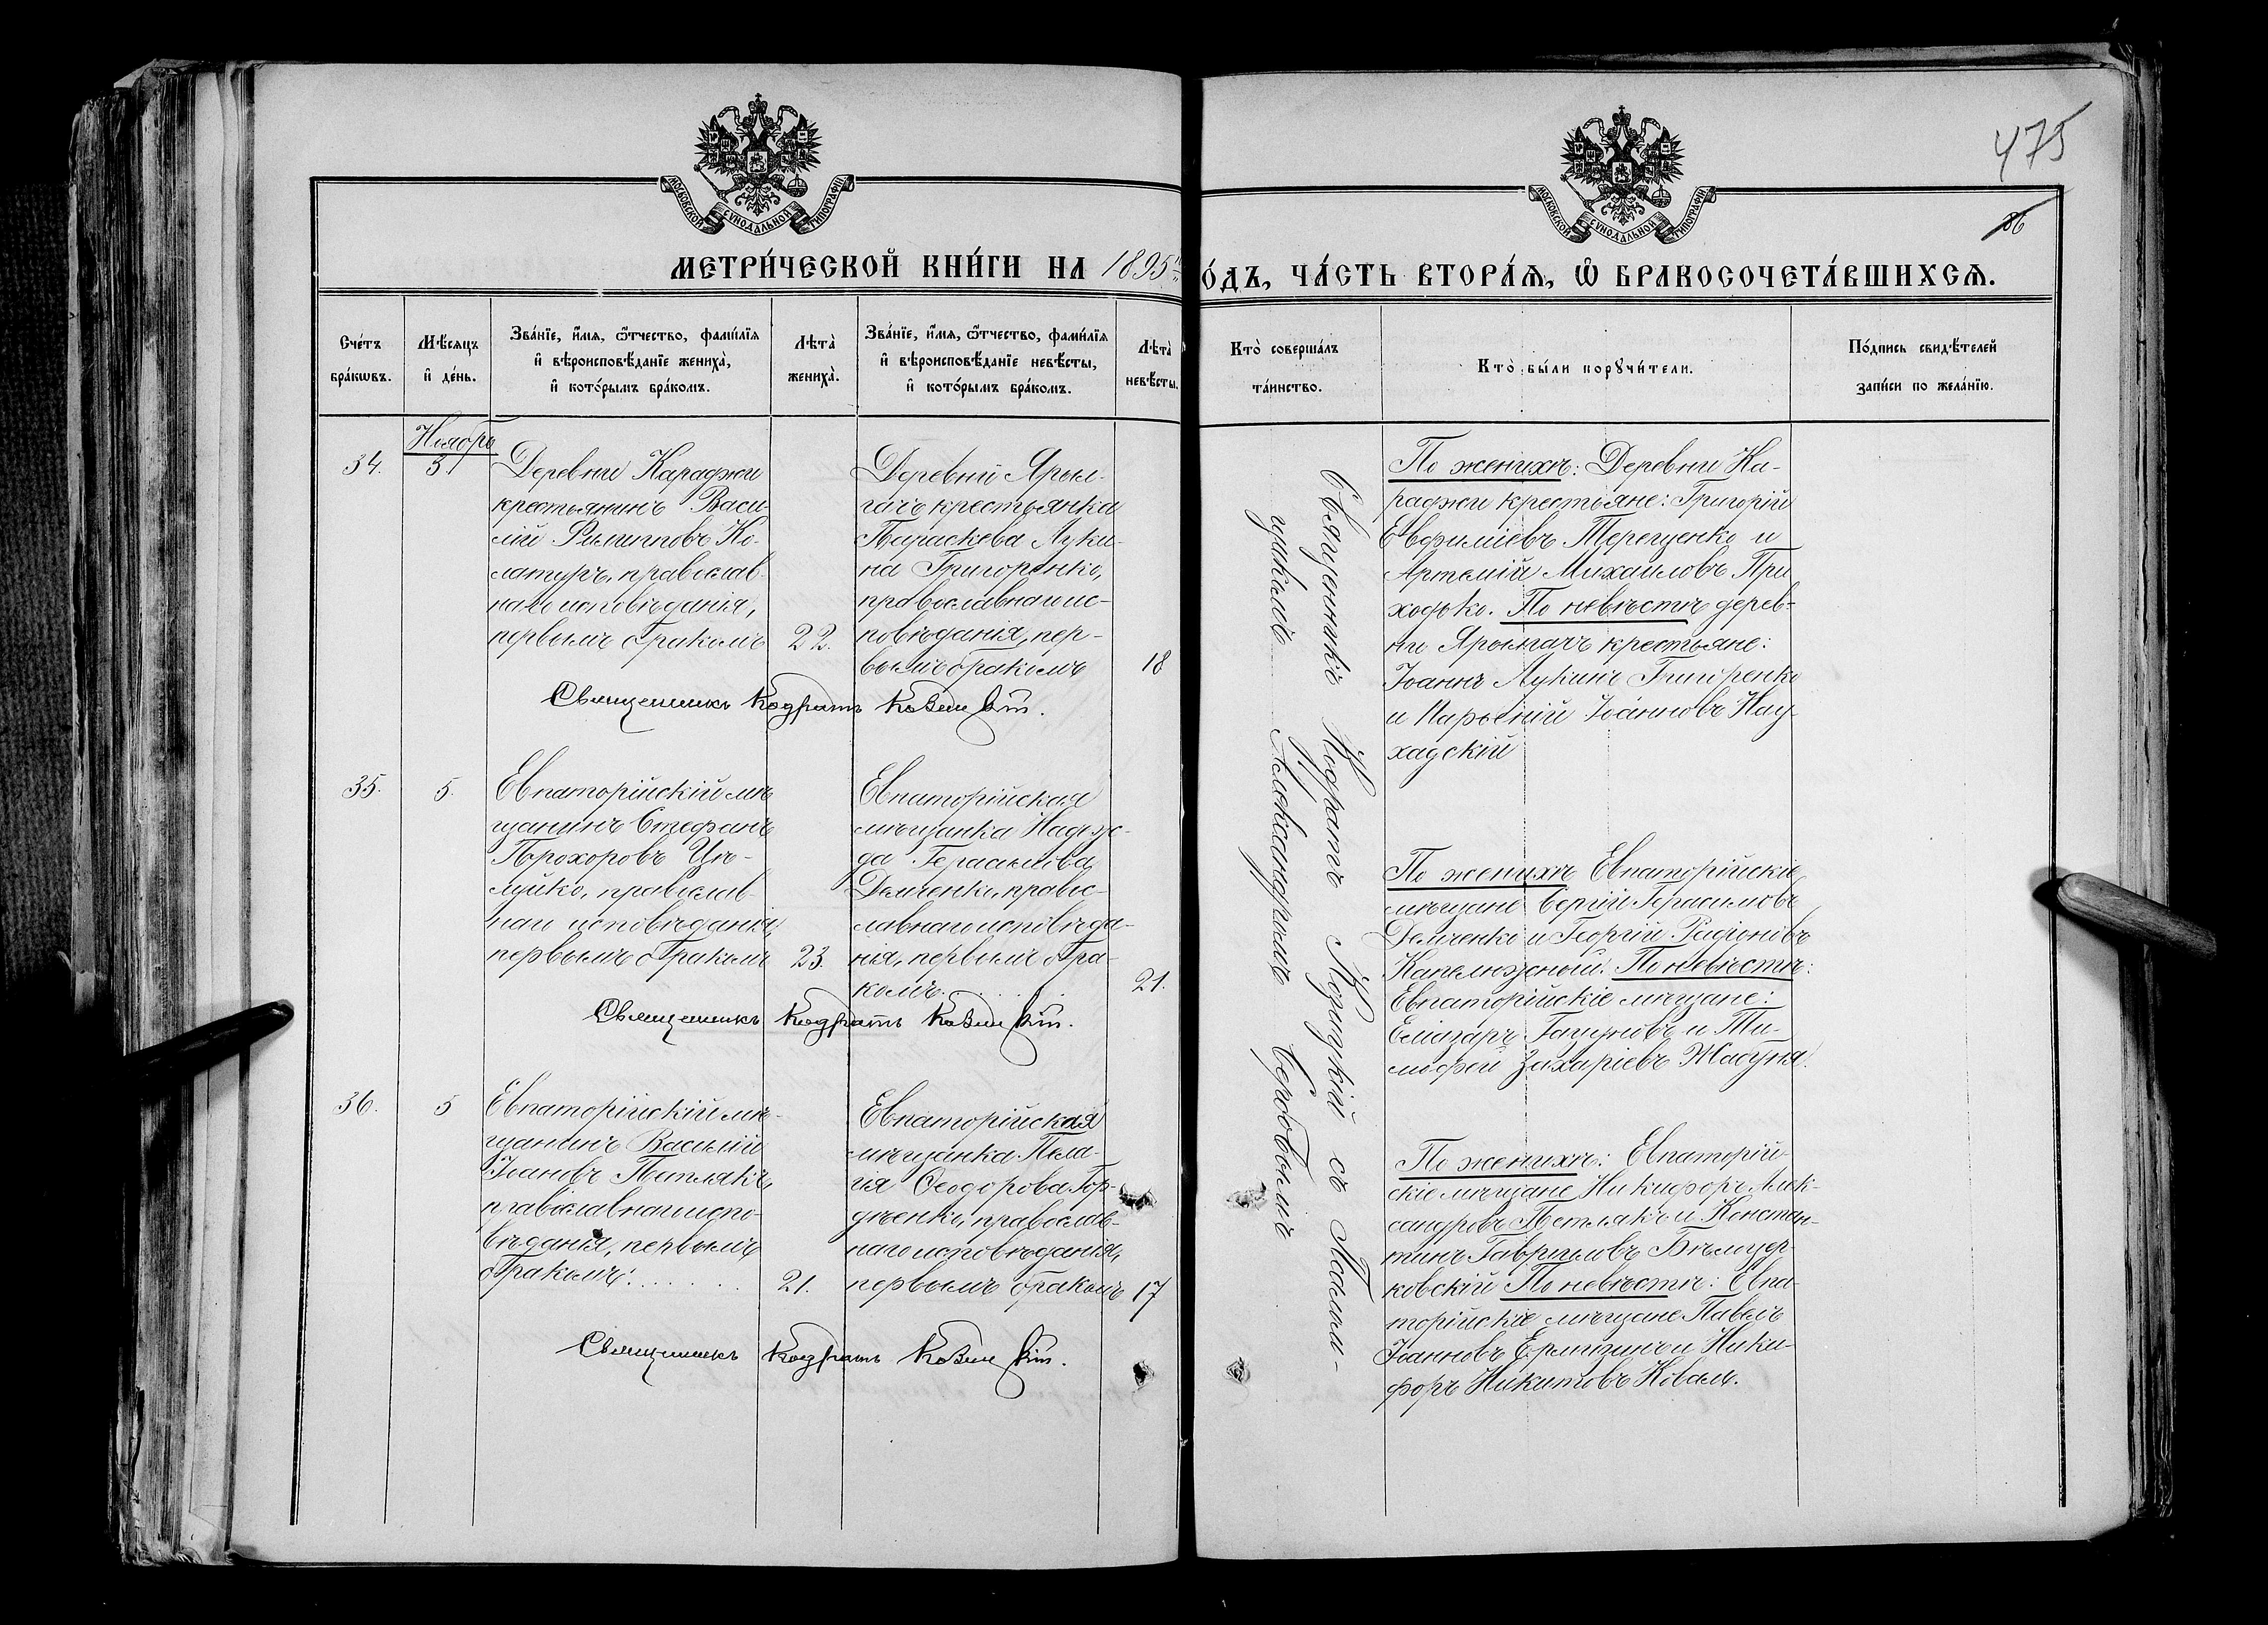 475
86
МОСКОВСКОЙ СУНОДАЛЬНОЙ ТИПОГРАФІИ
МОСКОВСКОЙ СУНОДАЛЬНОЙ ТИПОГРАФІИ
МЕТРИ́ЧЕСКОЙ КНИ́ГИ НА 1895й
О́ДЪ, ЧА́СТЬ ВТОРА́Я, Ѡ БРАКОСОЧЕТА́ВШИХСЯ.
Сче́тъ
бра́кѡвъ.
Мѣ́сяцъ
и҆ де́нь.
Зва́нїе, и҆́мя, ѻ҆́тчество, фами́лїя
и҆ вѣроисповѣ́данїе жениха̀,
и҆ кото́рымъ бра́комъ.
Лѣта̀
жениха̀.
Зва́нїе, и҆́мя, ѻ҆́тчество, фами́лїя
и҆ вѣроисповѣ́данїе невѣ́сты,
и҆ кото́рымъ бра́комъ.
Лѣта̀
невѣ́сты.
Кто̀ соверша́лъ
та́инство.
Кто̀ бы́ли поручи́тели.
По́дпись свидѣ́телей
за́писи по жела́нїю.
Ноябрь
34.
5.
Деревни Караджи
крестьянинъ Васи-
лій Филипповъ Ко-
латуръ, православ-
наго исповѣданія,
первымъ бракомъ
22.
Деревни Ярыл-
гачъ крестьянка
Параскева Луки-
на Григоренко,
православнаго ис-
повѣданія, пер-
вымъ бракомъ
18
Священникъ Кодратъ
По женихѣ: Деревни Ка-
раджи крестьяне: Григорій
Евфиміевъ Терещенко и
Артемій Михаиловъ При-
ходько. По невѣстѣ дерев-
ни Ярылгачъ крестьяне:
Іоаннъ Лукинъ Григоренко
и Іоанновъ
35.
5.
Евпаторійскій мѣ-
щанинъ Стефанъ
Прохоровъ Цѣ-
луйко, православ-
наго исповѣданія,
первымъ бракомъ
23.
Евпаторійская
мѣщанка Надеж-
да Герасимова
Демченко, право-
славнаго исповѣда-
нія, первымъ бра-
комъ.
21.
Священникъ Кодратъ
По женихѣ Евпаторійскіе
мѣщане Сергій Герасимовъ
Демченко и Георгій Родіоновъ
Капелюжный. По невѣстѣ:
Евпаторійскіе мѣщане:
Еліазаръ и Ти-
мофей Захаріевъ
36.
5
Евпаторійскій мѣ-
щанинъ Василій
Іоановъ Петлякъ,
православнаго испо-
вѣданія, первымъ
бракомъ.
21.
Евпаторійская
мѣщанка Пела-
гія Ѳеодорова Гор-
дѣенко, православ-
наго исповѣданія,
первымъ бракомъ
17
Священникъ Кодратъ
По женихѣ: Евпаторій-
скіе мѣщане Никифоръ Алек-
сандровъ Петлякъ и Констан-
тинъ Гавриловъ Бѣлоцер-
ковскій По невѣстѣ: Евпа-
торійскіе мѣщане Павелъ
Іоанновъ и Ники-
форъ Никитовъ Коваль.
Священникъ Кодратъ съ Псалом-
щикомъ Александромъ Серобомъ